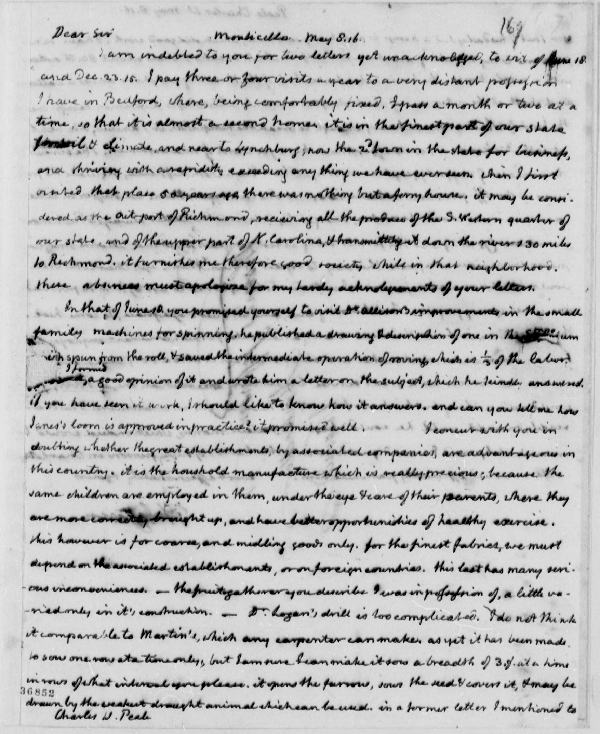 169
Dear Sir Monticello May 8. 16.
I am indebted to you for two letters yet unacknoleged, to wit of June 18.
and Dec. 23. 15. I pay three or four visits a year to a very distant possession
I have in Bedford, where, being comfortably fixed, I pass a month or two at a
time, so that it is almost a second home. it is in the finest part of our state
for soil & climate, and near to Lynchburg, now the 2d town in the state for business,
and thriving with a rapidity exceeding any thing we have ever seen. when I first
visited that place 50 years ago there was nothing but a ferry house. it may be consi-
dered as the out port of Richmond, recieving all the produce of the S. Western quarter of
our state, and of the upper part of N. Carolina, & transmitting it down the river 130 miles
to Richmond. it furnishes me therefore good society while in that neighborhood.
these absences must apologize for my tardy acknolegements of your letters.
In that of June 18. you promised yourself to visit Dr. Allison's improvements in the small
family machines for spinning. he published a drawing & description of one in the
spun from the roll, & saved the intermediate operation of roving, which is 1/2 of the labor.
I formed
a good opinion of it and wrote him a letter on the subject, which he kindly answered.
if you have seen it work, I should like to know how it answers. and can you tell me how
Janes's loom is approved in practice? it promised well. I concur with you in
doubting whether the great establishments, by associated companies, are advantageous in
this country. it is the houshold manufacture which is really precious; because the
same children are employed in them, under the eye & care of their parents, where they
are more correctly brought up, and have better opportunities of healthy exercise.
this however is for coarse, and midling goods only. for the finest fabrics, we must
depend on the associated establishments, or on foreign countries. this last has many seri-
ous inconveniences. — the fruitgatherer you describe I was in possession of, a little va-
-ried only in it's construction. — Dr. Logan's drill is too complicated. I do not think
it comparable to Martin's, which any carpenter can make. as yet it has been made
to sow one row at a time only, but I am sure I can make it sow a breadth of 3. f. at a time
in rows of what interval you please. it opens the furrow, sows the seed & covers it, & may be
drawn by the weakest draught animal which can be used. in a former letter I mentioned to
36852
Charles W. Peale